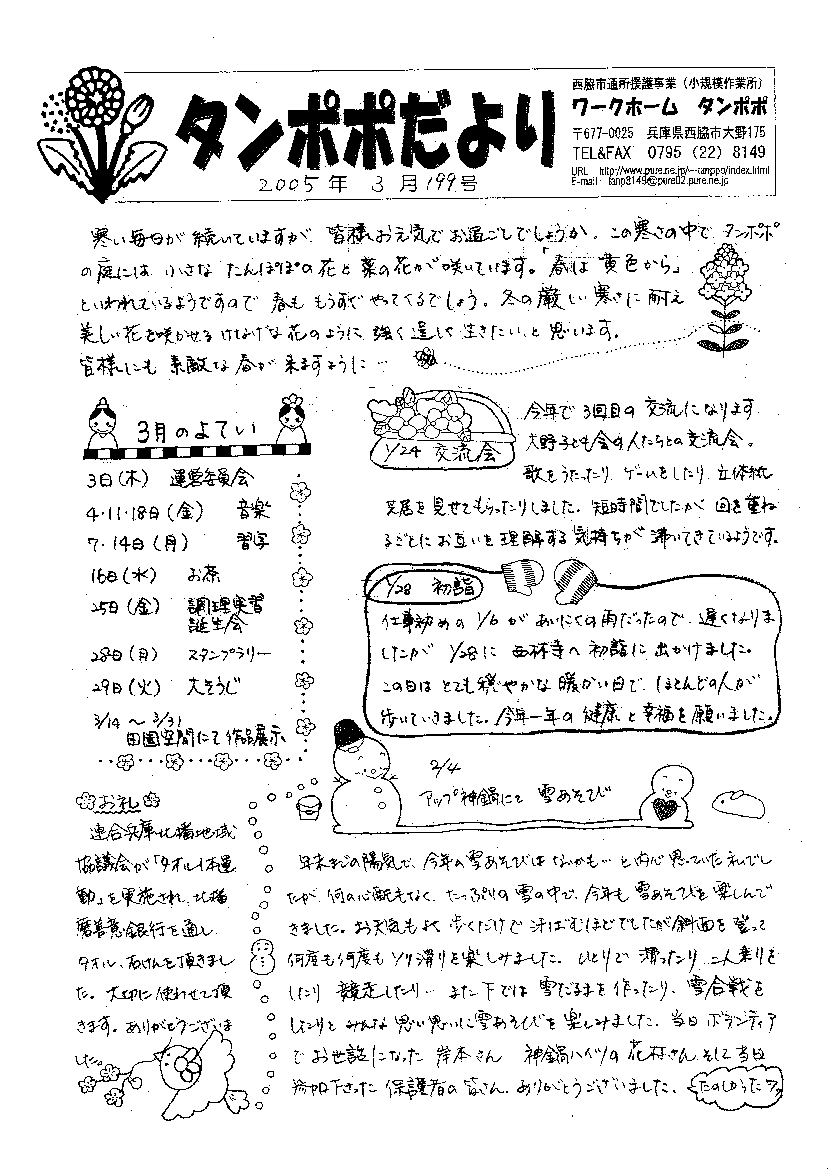 タンポポだより
2005年 3月199号
西脇市通所援護事業（小規模作業所）
ワークホーム タンポポ
〒677-0025 兵庫県西脇市大野175
TEL&FAX 0795（22）8149
URL http://www.pure.ne.jp/~tanppo/index.html
E-mail tanp8149@pure02.pure.ne.jp
寒い毎日が続いていますが、皆様お元気でお過ごしでしょうか。この寒さの中で、タンポポ
の庭には 小さな たんぽぽの花と菜の花が咲いています。「春は 黄色から」
といわれているようですので 春も もうすぐ やってくるでしょう。冬の厳しい寒さに耐え
美しい花を咲かせる けなげな花のように 強く逞しく生きたい、と思います。
皆様にも 素敵な春が来ますように…
3月のよてい
3日（木） 運営委員会
4・11・18日（金） 音楽
7・14日（月） 習字
16日（水） お茶
25日（金） 調理実習
誕生会
28日（月） スタンプラリー
29日（火） 大そうじ
3/14 〜 3/31
田園空間にて作品展示
1/24 交流会
今年で 3回目の 交流になります
大野子ども会の人たちとの交流会。
歌をうたったり、ゲームをしたり、立体紙
芝居を見せてもらったりしました。短時間でしたが 回を重ね
るごとにお互いを理解する気持ちが 沸いてきているようです。
1/28 初詣
仕事始めの 1/6 が あいにくの雨だったので、遅くなりま
したが 1/28に 西林寺へ 初詣に 出かけました。
この日は とても穏やかな暖かい日で、ほとんどの人が
歩いていきました。今年一年の健康と幸福を願いました。
2/4
アップ神鍋にて 雪あそび
年末までの陽気で、今年の雪あそびは なかも…と内心思っていたんでし
たが 何の心配もなく、たっぷりの雪の中で、今年も雪あそびを楽しんで
きました。お天気もよく 歩くだけで 汗ばむほどでしたが斜面を登って
何度も何度もソリ滑りを楽しみました。ひとりで 滑ったり 二人乗りを
したり 競走したり… また下では 雪だるまを作ったり、雪合戦を
したりと みんな思い思いに雪あそびを楽しみました。当日 ボランティア
でお世話になった 岸本さん 神鍋ハイツの花村さん、そして当日
参加下さった 保護者の皆さん、ありがとうございました。
たのしかったワ
お礼
連合兵庫北播地域
協議会が「タオル1本運
動」を実施され、北播
磨善意銀行を通し
タオル、石けんを頂きまし
た。大切に使わせて頂
きます。ありがとうございま
した。